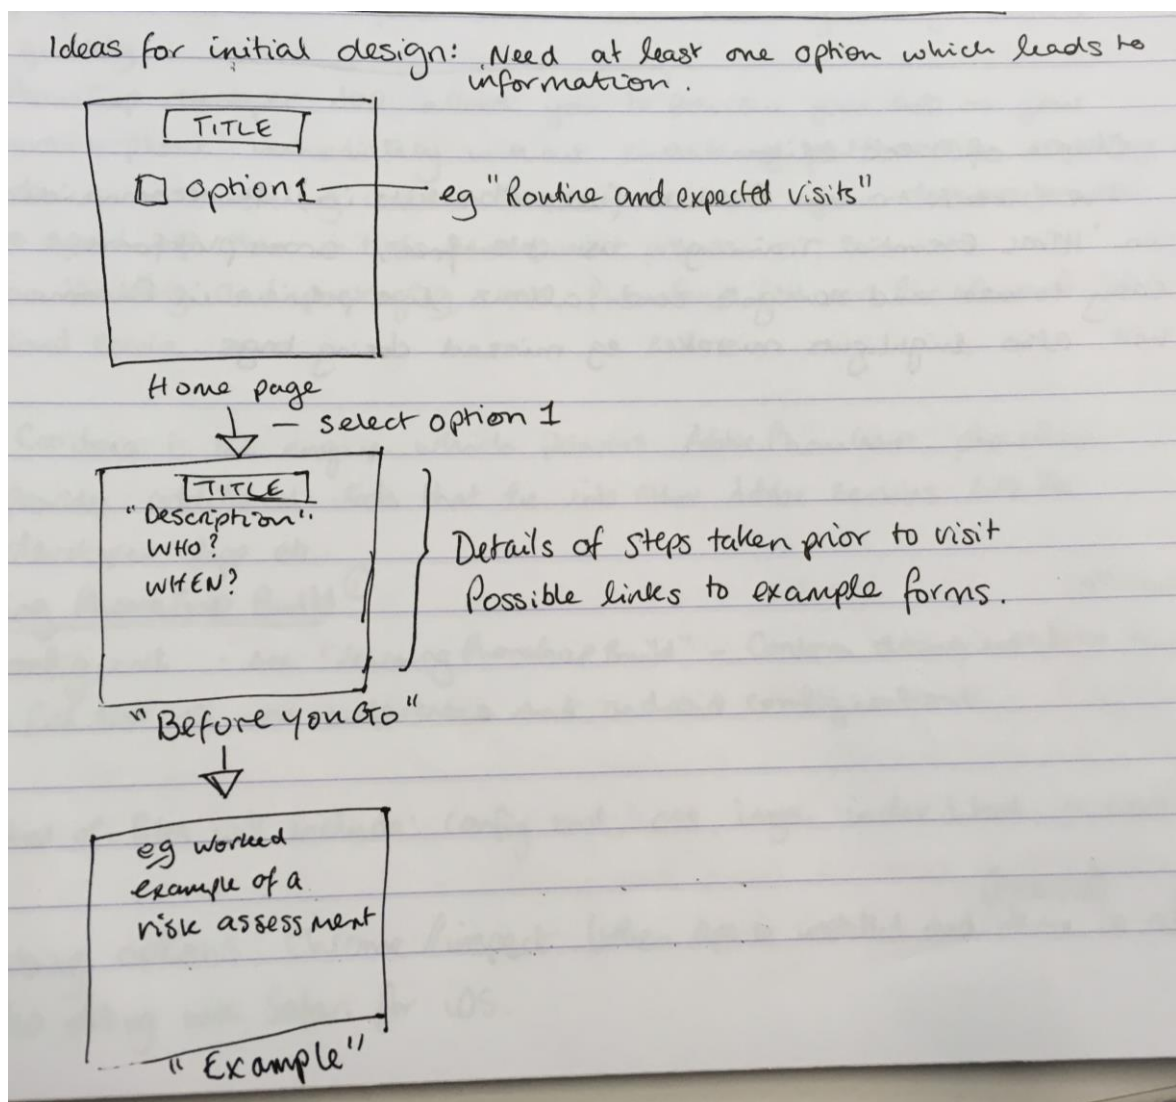 Ideas for initial design: Need at least one option which leads to
information.
TITLE
option 1 — eg "Routine and expected visits"
Home page
– select option 1
TITLE
"Description"
WHO?
WHEN?
Details of steps taken prior to visit
Possible links to example forms.
"Before you Go"
eg worked
example of a
risk assessment
"Example"